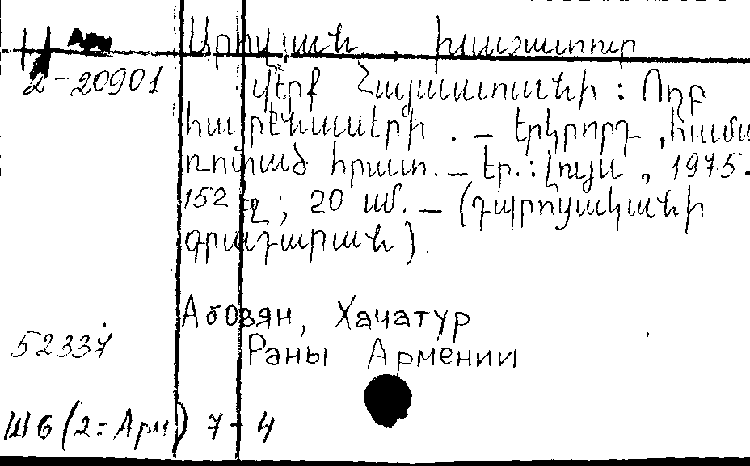 Арм Աբովյան, Խաչատուր
2-20901 Վերք Հայաստանի : Ողբ
հայրենասերի . — Երկրորդ , համա
ռոտած հրատ. — Եր. : Լույս , 1975. —
152 էջ ; 20 սմ. — (Դպրոցականի
գրադարան).
Абовян, Хачатур
52337 Раны Армении
Ш6(2=Арм) 7-4